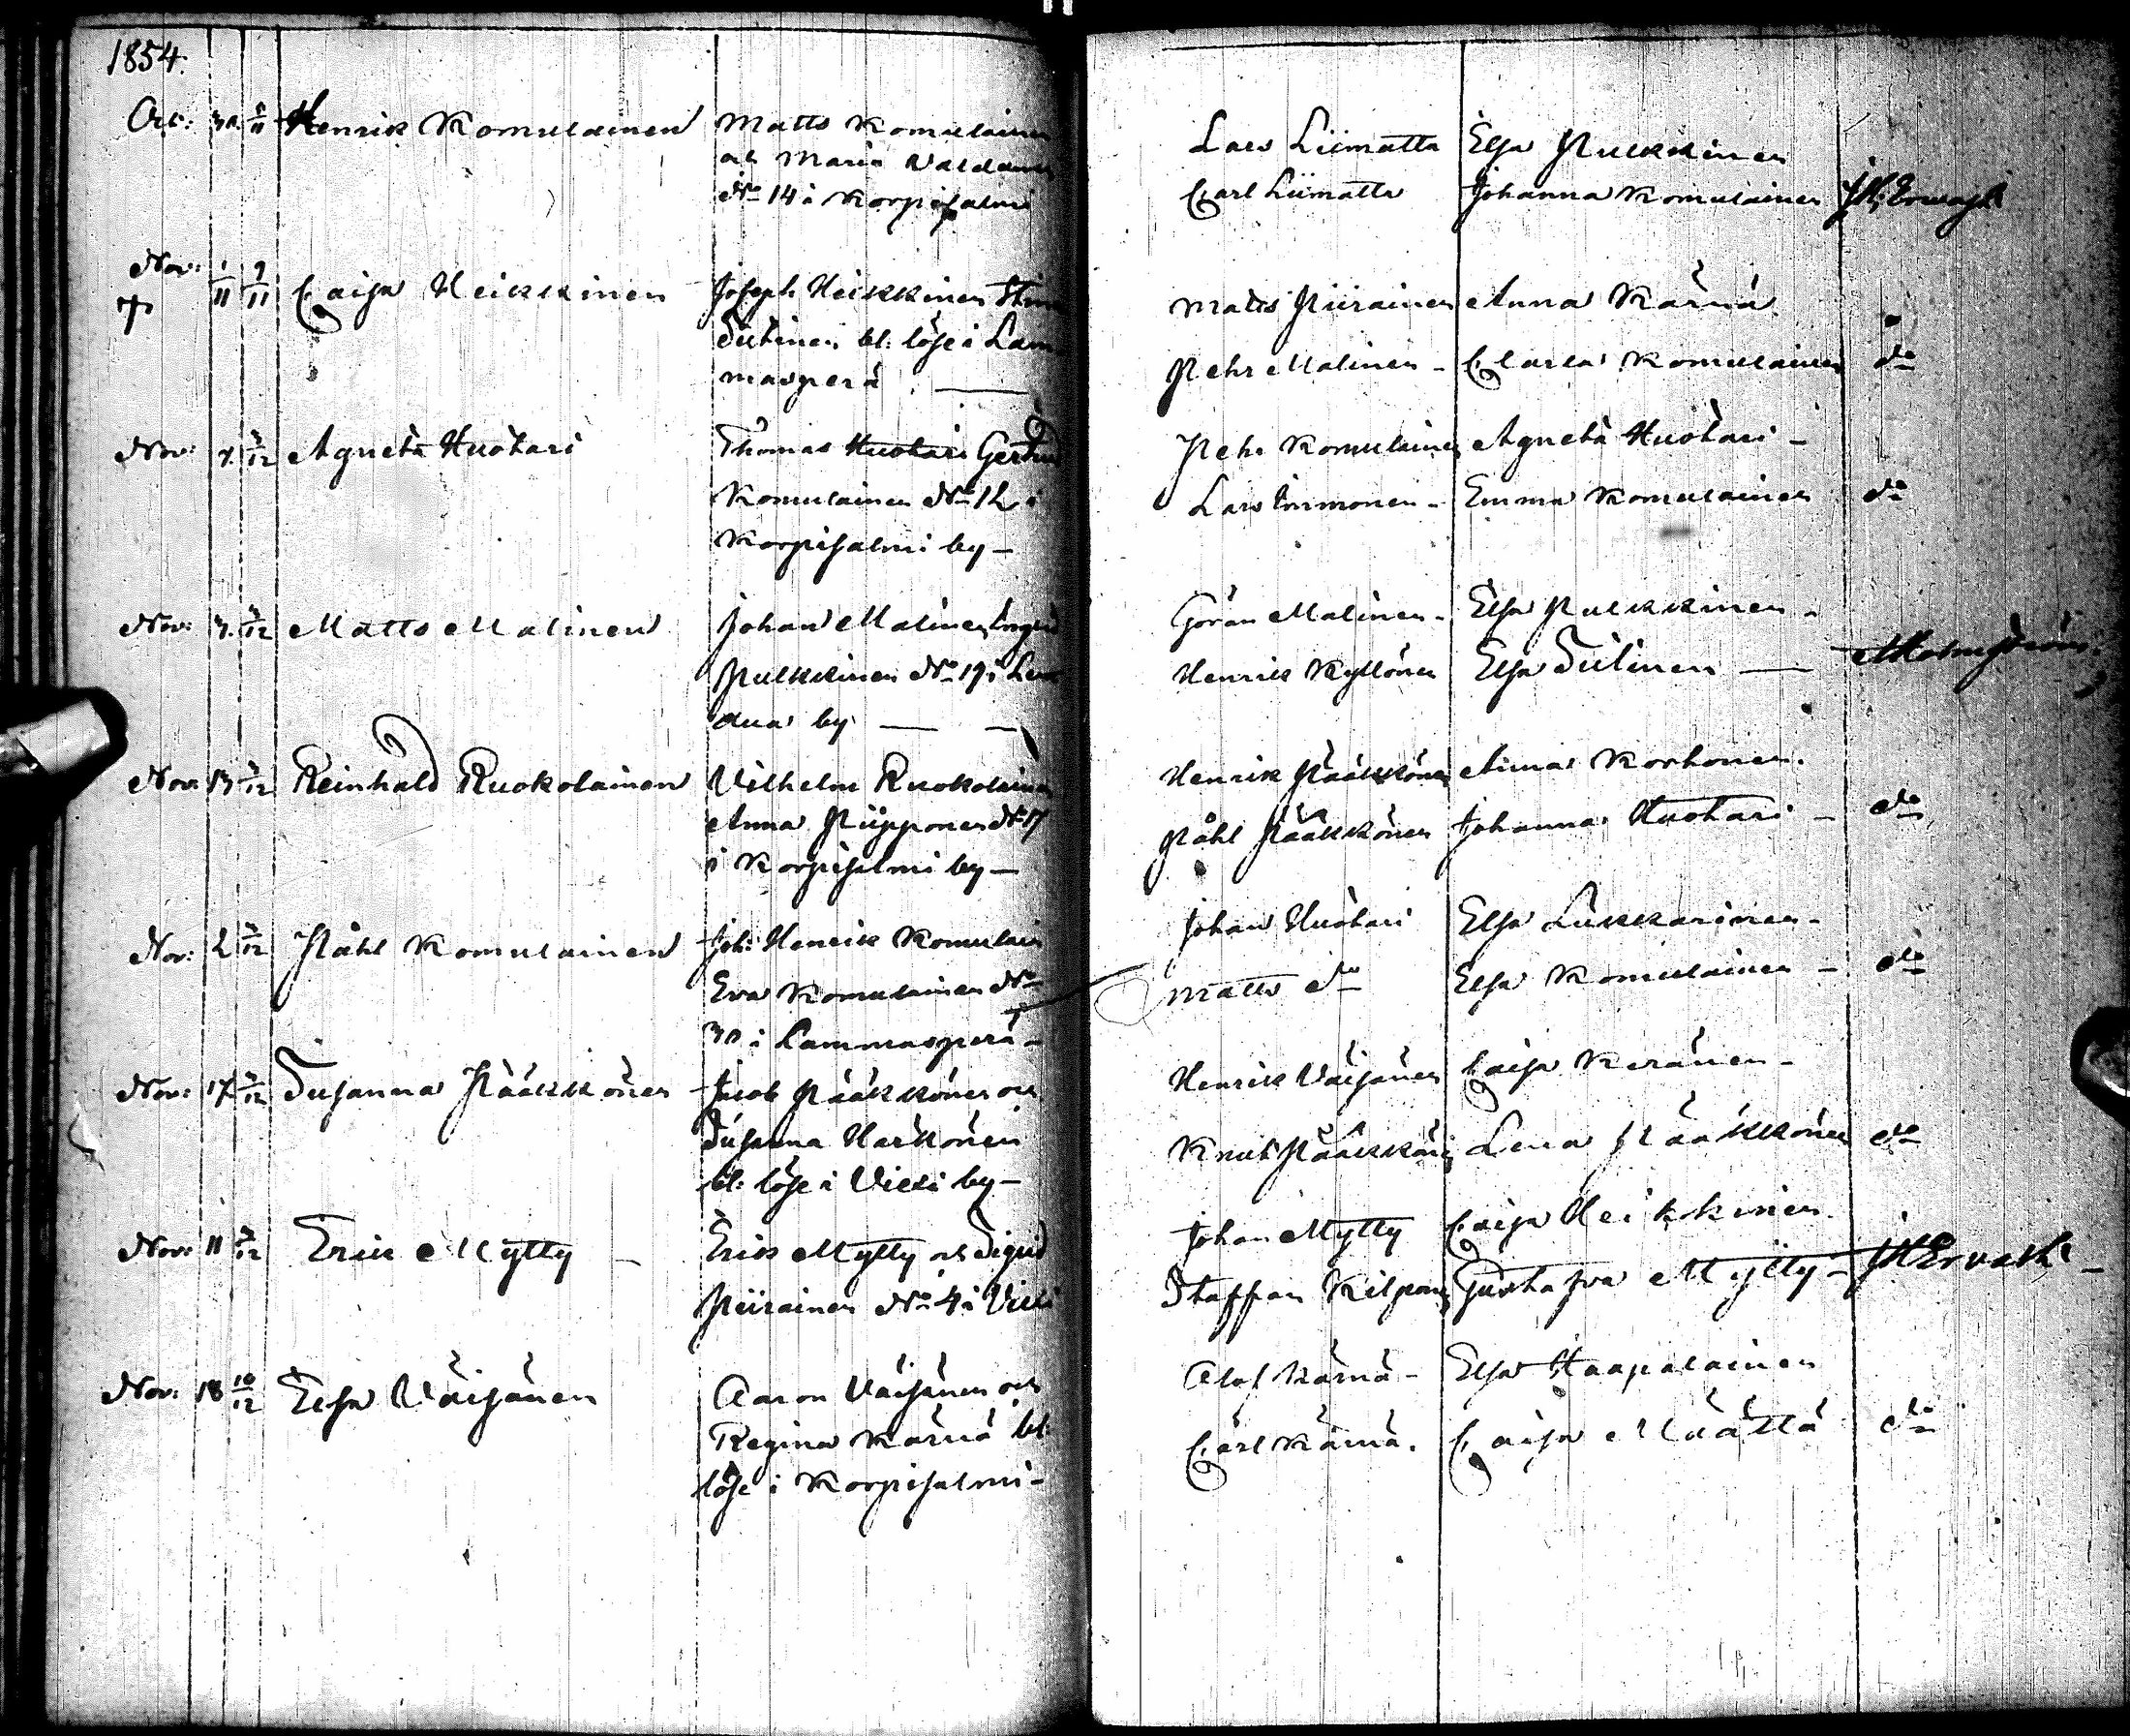 1854.
Oct: 30. 5/11 Henrik Komulainen Matts Komulainen
och Maria
No 14 i Korpisalmi
Lars Liimatta Elsa Pulkkinen
Carl Liimatta Johanna Komulainen
Nov: 1/11 9/11 Caisa Heikkinen Joseph Heikkinen Stina
Sutinen bl: löse i Lam
masperä
Matts Piirainen Anna Kärnä
Pehr Malinen - Clara Komulainen do
Nov: 7. 3/12 Agneta Huotari Thomas Huotari Gertrud
Komulainen No 12 i
Korpisalmi by -
Pehr Komulainen Agneta Huotari -
Lars Emma Komulainen do
Nov: 7. 3/12 Matts Malinen Johan Malinen Ingrid
Pulkkinen No 19 i
by
Göran Malinen - Elsa Pulkkinen -
Henrik Kyllönen Elsa Sutinen - Holmström
Nov: 13 3/12 Reinhold Ruokolainen Vilhelm Ruokolainen
Anna Piipponen No 17
i Korpisalmi by -
Henrik Pääkkönen Anna Korhonen.
Påhl Pääkkönen Johanna Huotari - do
Nov: 2 3/12 Påhl Komulainen Joh: Henrik Komulain
Eva Komulainen No
30 i Lammasperä -
Johan Huotari Elsa Lukkarinen -
Matts do Elsa Komulainen - do
Nov: 17 3/12 Susanna Pääkkönen Jacob Pääkkönen och
Susanna Härkönen
bl: löse i Vieki by -
Henrik Väisänen Caisa Keränen -
Knut Pääkkönen Lena Pääkkönen do
Nov: 11 3/12 Eric Mytty - Erik Mytty och Sigrid
Piirainen No 4 i Vieki
Johan Mytty Caisa Heikkinen
Staffan Kilponen Gustafva Mytty - J H Ervast -
Nov: 18 10/12 Elsa Väisänen Aaron Väisänen och
Regina Kärnä bl:
löse i Korpisalmi -
Olof Kärnä - Elsa Haapalainen
Carl Kärnä. Caisa Määttä do